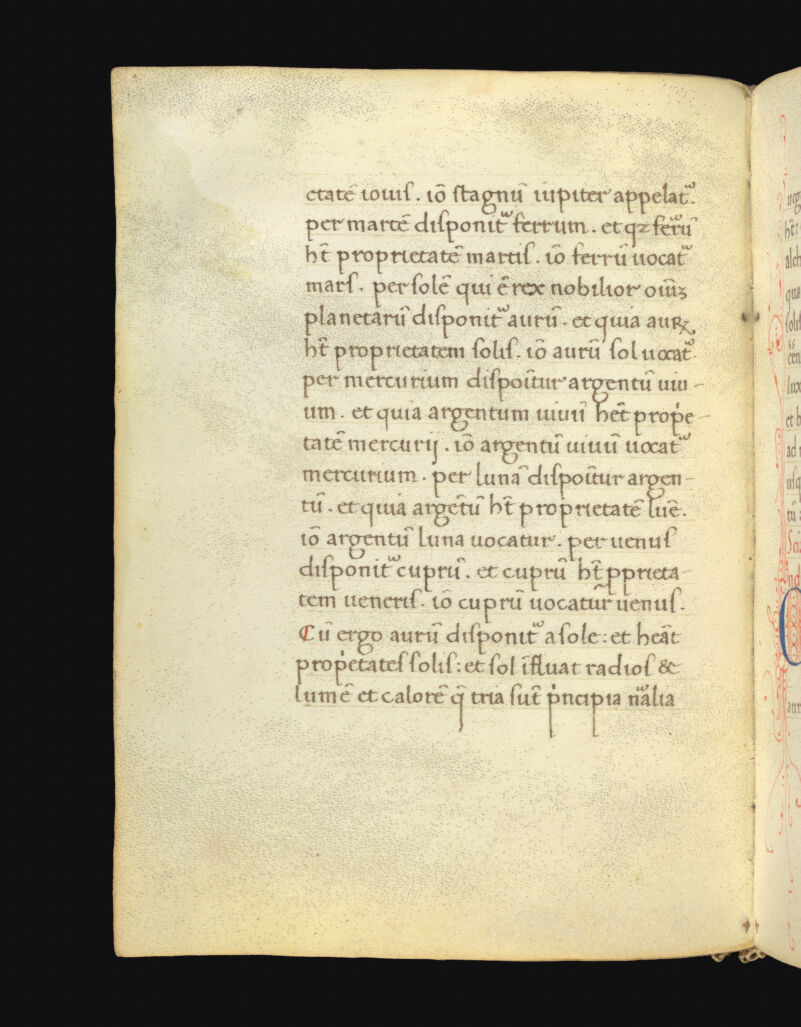 etatē iouis. iō stagnū iupiter appelat᷑.
per martē disponit᷑ ferrum. et qꝫ ferū
ht̄ proprietatē martis. iō ferrū uocat᷑
mars. per solē qui ē rex nobilior oiūꝫ
planetarū disponit᷑ aurū. et quia auꝝ
ht̄ proprietatem solis. iō aurū sol uocat᷑.
per mercurium dispoītur argentū uiu-
um. et quia argentum uiuū het̄ prop̍e-
tatē mercurij. iō argentū uiuū uocat᷑
mercurium. per lunā dispoītur argen-
tū. et quia argētū ht̄ proprietatē lūe.
iō argentū luna uocatur. per uenus
disponit᷑ cuprū. et cuprū ht̄ pprieta-
tem ueneris. iō cuprū uocatur uenus.
Cū ergo aurū disponit᷑ a sole: et heāt
prop̍etates solis: et sol īfluat radios &
lumē et calorē q̄ tria sūt p̍ncipia nãlia